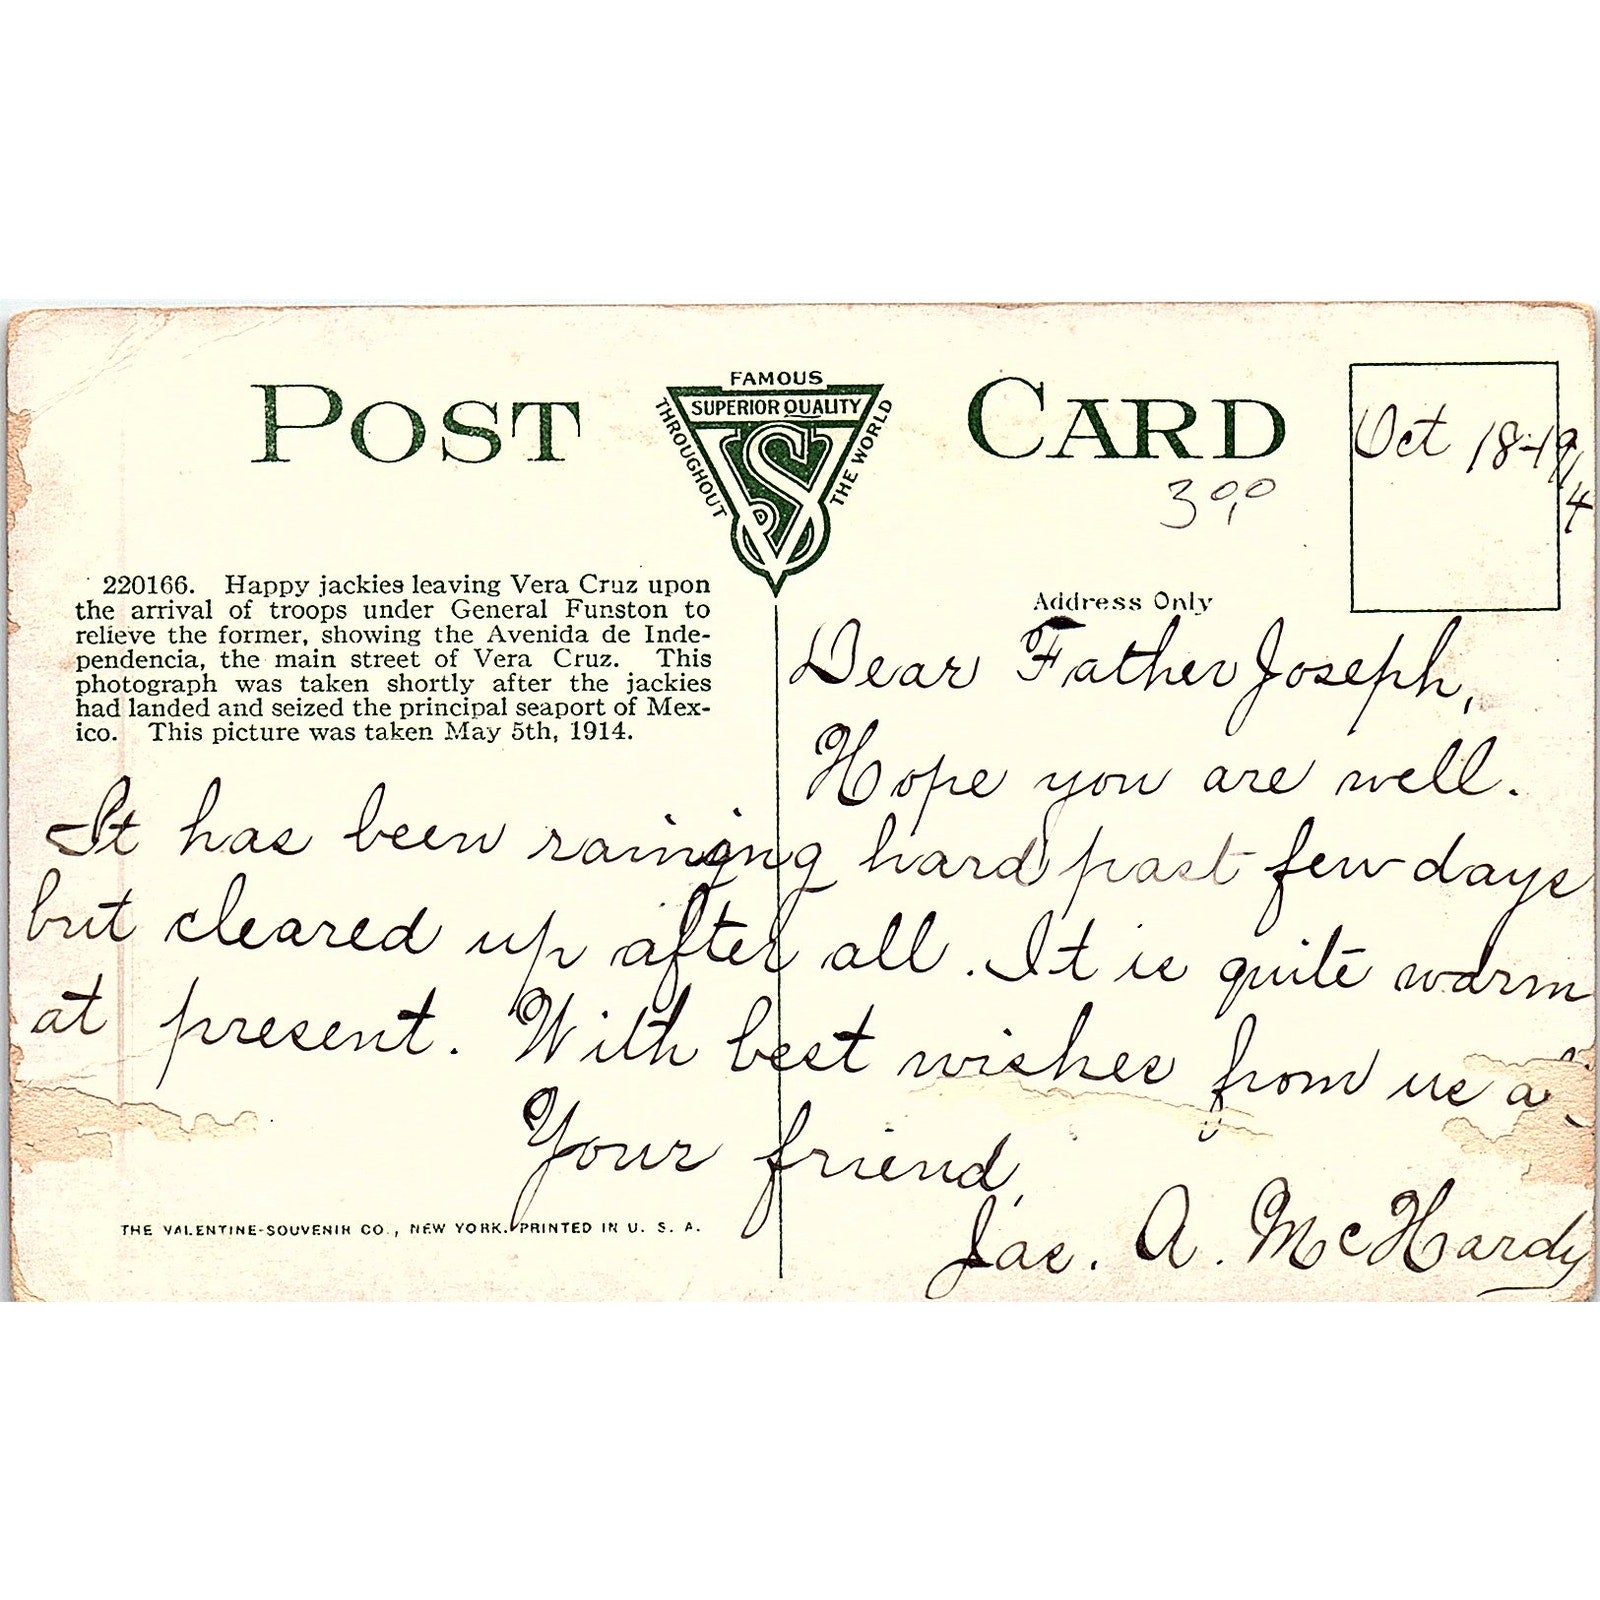 POST CARD
FAMOUS
SUPERIOR QUALITY
THROUGHOUT
THE WORLD
VS
Oct 18-1914
3.00
220166. Happy jackies leaving Vera Cruz upon
the arrival of troops under General Funston to
relieve the former, showing the Avenida de Inde-
pendencia, the main street of Vera Cruz. This
photograph was taken shortly after the jackies
had landed and seized the principal seaport of Mex-
ico. This picture was taken May 5th, 1914.
Address Only
Dear Father Joseph,
Hope you are well.
It has been raining hard past few days
but cleared up after all. It is quite warm
at present. With best wishes from us
Your friend,
Jas. A. McHardy
THE VALENTINE-SOUVENIR CO., NEW YORK. PRINTED IN U. S. A.